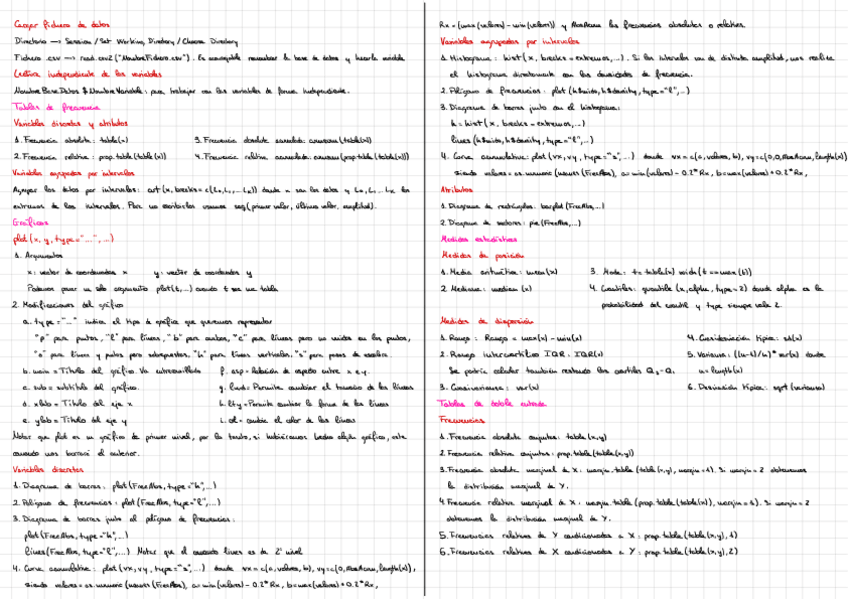 Cargar fichero de datos
Directorio → Session / Set Working, Directory / Choose Directory
Fichero .csv → read.csv2("NombreFichero.csv"). Es aconsejable renombrar la base de datos y hacerla visible
Lectura independiente de las variables
NombreBaseDatos $ NombreVariable : para trabajar con las variables de forma independiente.
Tablas de frecuencia
Variables discretas y atributos
1. Frecuencia absoluta : table(x)
3. Frecuencia absoluta acumulada: cumsum(table(x))
2. Frecuencia relativa : prop.table(table(x))
4. Frecuencia relativa acumulada: cumsum(prop.table(table(x)))
Variables agrupadas por intervalos
Agrupar los datos por intervalos: cut(x, breaks=c(L0,L1,...Lk)) donde x son los datos y L0, L1, ... Lk los
extremos de los intervalos. Para no escribirlos usamos seq(primer valor, último valor, amplitud).
Gráficos
plot(x, y, type="...", ...)
1. Argumentos
x: vector de coordenadas x y: vector de coordenadas y
Podemos poner un sólo argumento plot(t,...) cuando t sea una tabla
2. Modificaciones del gráfico
a. type="..." indica el tipo de gráfico que queremos representar
"p" para puntos, "l" para líneas, "b" para ambos, "c" para líneas pero no unidas en los puntos,
"o" para líneas y puntos pero superpuestos, "h" para líneas verticales, "s" para pasos de escalera.
b. main = Título del gráfico. Va entrecomillado
f. asp = Relación de aspecto entre x e y.
c. sub = subtítulo del gráfico.
g. lwd = Permite cambiar el tamaño de las líneas
d. xlab = Título del eje x
h. lty = Permite cambiar la forma de las líneas
e. ylab = Título del eje y
i. col = cambia el color de las líneas
Notar que plot es un gráfico de primer nivel, por lo tanto, si hubiéramos hecho algún gráfico, este
comando nos borrará el anterior.
Variables discretas
1. Diagrama de barras : plot(FrecAbs, type="h",...)
2. Polígono de frecuencias : plot(FrecAbs, type="l",...)
3. Diagrama de barras junto al polígono de frecuencias :
plot(FrecAbs, type="h",...)
lines(FrecAbs, type="l",...) Notar que el comando lines es de 2º nivel
4. Curva acumulativa : plot(vx, vy, type="s",...) donde vx=c(a, valores, b), vy=c(0, AbsAcum, length(x)),
siendo valores=as.numeric(names(FrecAbs), a=min(valores)-0.2*Rx, b=max(valores)+0.2*Rx,
Rx = (max(valores)-min(valores)) y AbsAcum las frecuencias absolutas o relativas.
Variables agrupadas por intervalos
1. Histograma : hist(x, breaks=extremos,...). Si los intervalos son de distinta amplitud, nos realiza
el histograma directamente con las densidades de frecuencia.
2. Polígono de frecuencias : plot(h$mids, h$density, type="l",...)
3. Diagrama de barras junto con el histograma:
h=hist(x, breaks=extremos,...)
lines(h$mids, h$density, type="l",...)
4. Curva acumulativa: plot(vx,vy, type="s",...) donde vx=c(a,valores,b), vy=c(0,0,AbsAcum,length(x))
siendo valores=as.numeric(names(FrecAbs), a=min(valores)-0.2*Rx, b=max(valores)+0.2*Rx,
Atributos
1. Diagrama de rectángulos: barplot(FrecAbs,...)
2. Diagrama de sectores: pie(FrecAbs,...)
Medidas estadísticas
Medidas de posición
1. Media aritmética: mean(x)
3. Moda: t=table(x) which(t==max(t))
2. Mediana: median(x)
4. Cuantiles: quantile(x, alpha, type=2) donde alpha es la
probabilidad del cuantil y type siempre vale 2.
Medidas de dispersión
1. Rango : Rango = max(x)-min(x)
4. Cuasidesviación típica: sd(x)
2. Rango intercuartílico IQR: IQR(x)
5. Varianza: ((n-1)/n)*var(x) donde
Se podría calcular también restando los cuartiles Q3-Q1
n=length(x)
3. Cuasivarianza : var(x)
6. Desviación típica: sqrt(varianza)
Tablas de doble entrada
Frecuencias
1. Frecuencia absoluta conjunta: table(x,y)
2. Frecuencia relativa conjunta: prop.table(table(x,y))
3. Frecuencia absoluta marginal de X: margin.table(table(x,y), margin=1). Si margin=2 obtenemos
la distribución marginal de Y.
4. Frecuencia relativa marginal de X: margin.table(prop.table(table(x)), margin=1). Si margin=2
obtenemos la distribución marginal de Y.
5. Frecuencias relativas de Y condicionadas a X : prop.table(table(x,y),1)
6. Frecuencias relativas de X condicionadas a Y: prop.table(table(x,y),2)